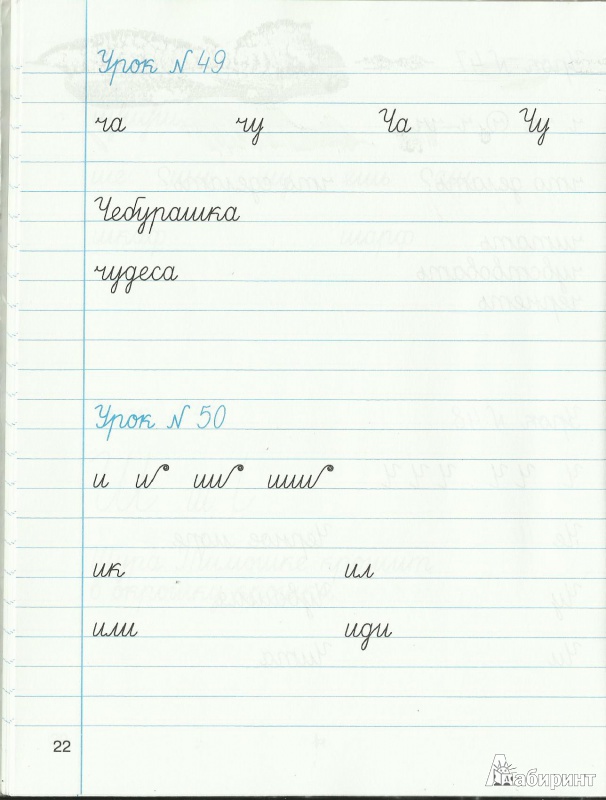 Урок № 49
ча чу Ча Чу
Чебурашка
чудеса
Урок № 50
и
ик ил
или иди
22
Лабиринт